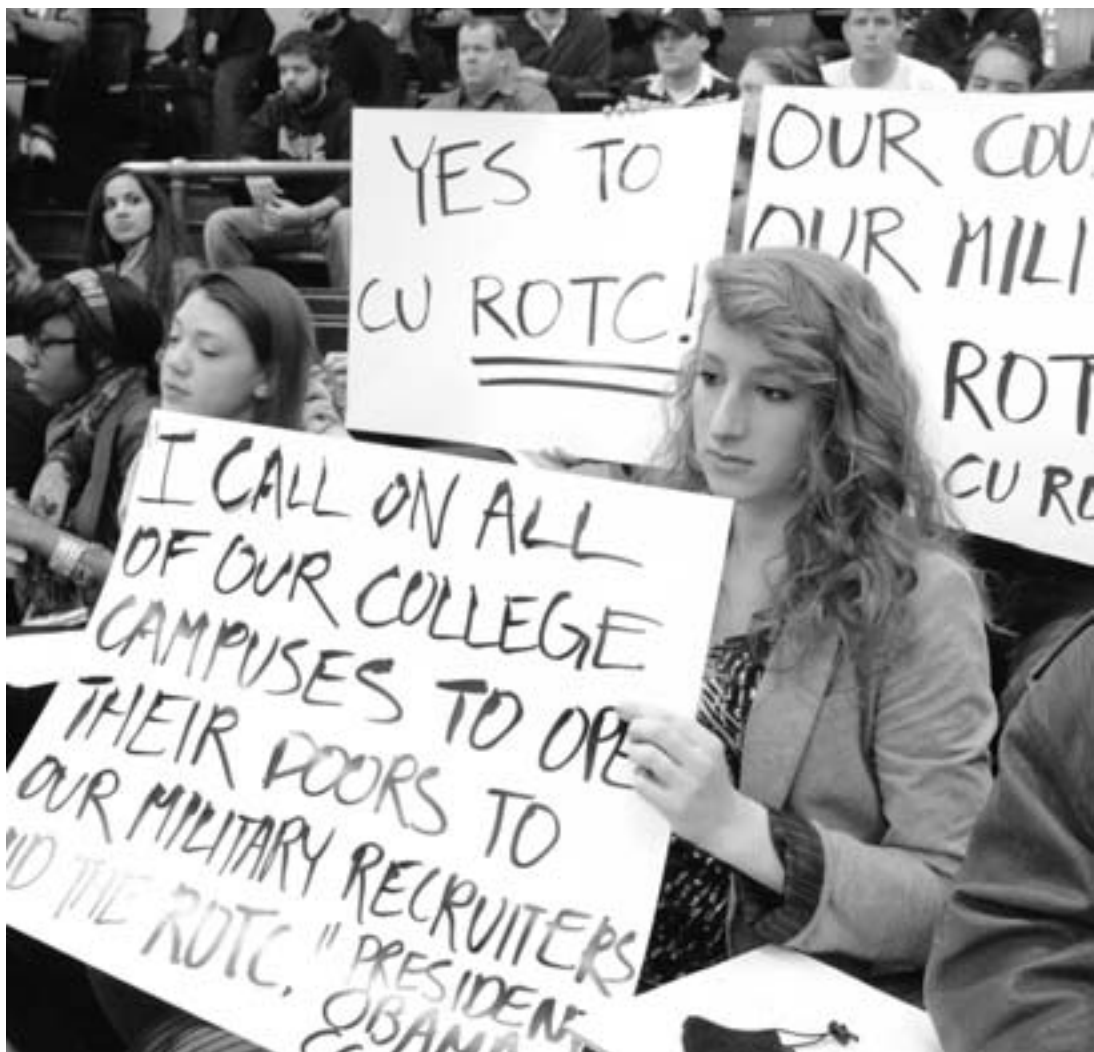 YES TO
CU ROTC!
OUR COU
OUR MILI
ROT
CU RO
"I CALL ON ALL
OF OUR COLLEGE
CAMPUSES TO OPE
THEIR DOORS TO
OUR MILITARY RECRUITERS
ND THE ROTC." PRESIDENT
OBAMA